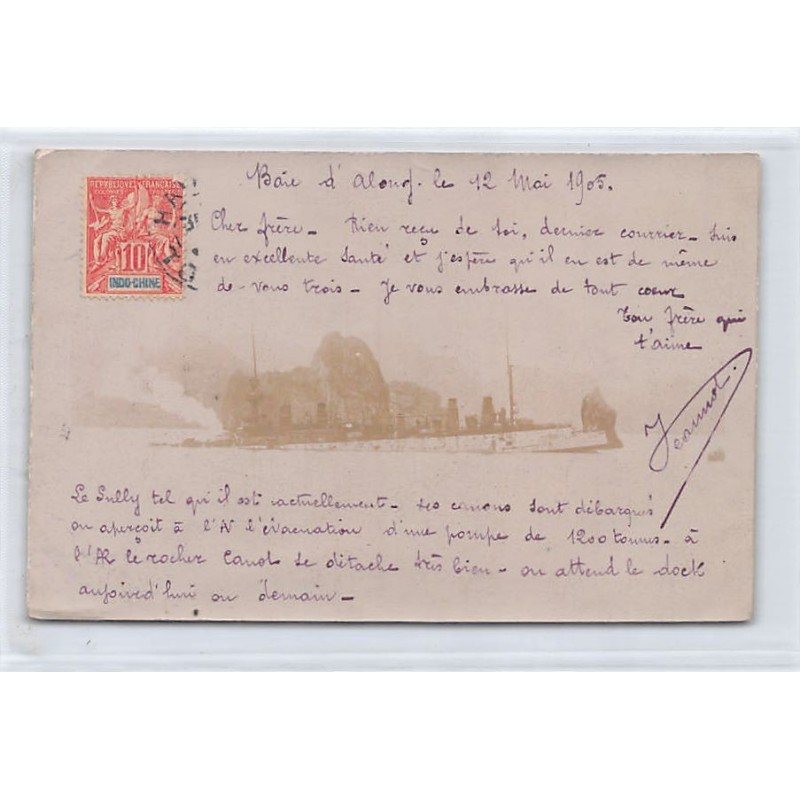 Baie d'Along. le 12 Mai 1905.
REPUBLIQUE FRANÇAISE
10
INDO-CHINE
HA
Cher frère - Rien reçu de toi, dernier courrier - Suis
en excellente santé et j'espère qu'il en est de même
de vous trois - Je vous embrasse de tout coeur
Ton frère qui
t'aime
Jeannot.
Le Sully tel qu'il est actuellement - Ses canons sont débarqués
on aperçoit à l'AV l'évacuation d'une pompe de 1200 tonnes - à
l'AR le rocher Canot se détache très bien - on attend le dock
aujourd'hui ou demain -